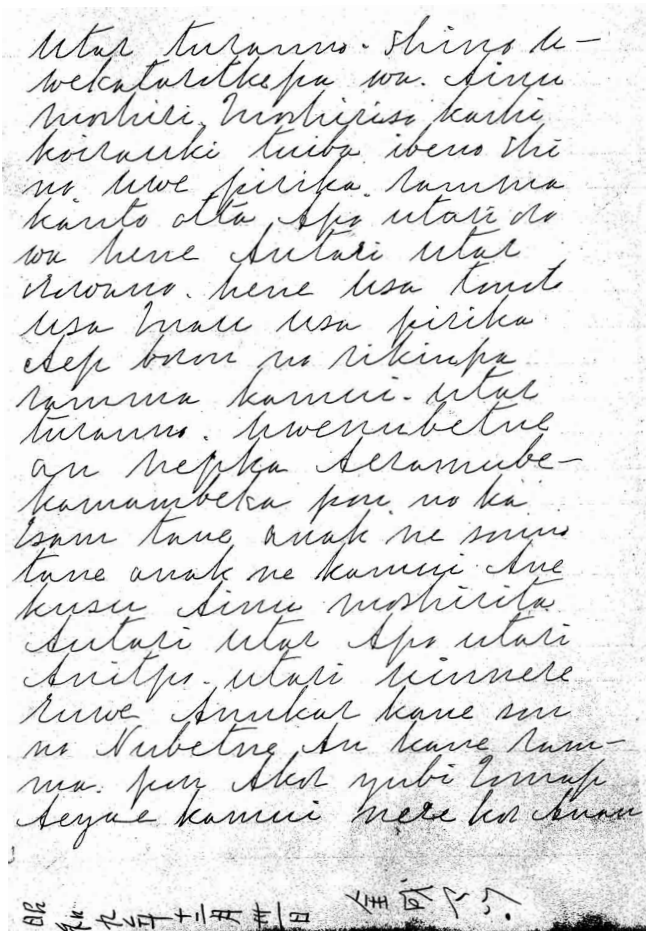 Utar turanno. Shino u-
wekatarotkepa wa. Ainu
moshiri. Moshiriso kashi
koirauki tuiba ibeno shi
no uwe pirika. ramma
kanto otta Apo utari oro
wa hene Autari utar
orowano. hene usa tonoto
usa Inau usa pirika
Aep boron no rikinpa
ramma kamui. utar
turanno. uwenubetne
an nepka Aeramube-
kamambeka pon no ka
Isam tane anak ne somo
tane anak ne kamui Ane
kusu Ainu moshirita
Autari utar Apo utari
Anitpo. utari uinnere
ruwe Anukar kane son
no Nubetne An kane ram-
ma. pon Akor yubi Iomap
Aeyae kamui nere kor Anan
昭和九年十二月四日